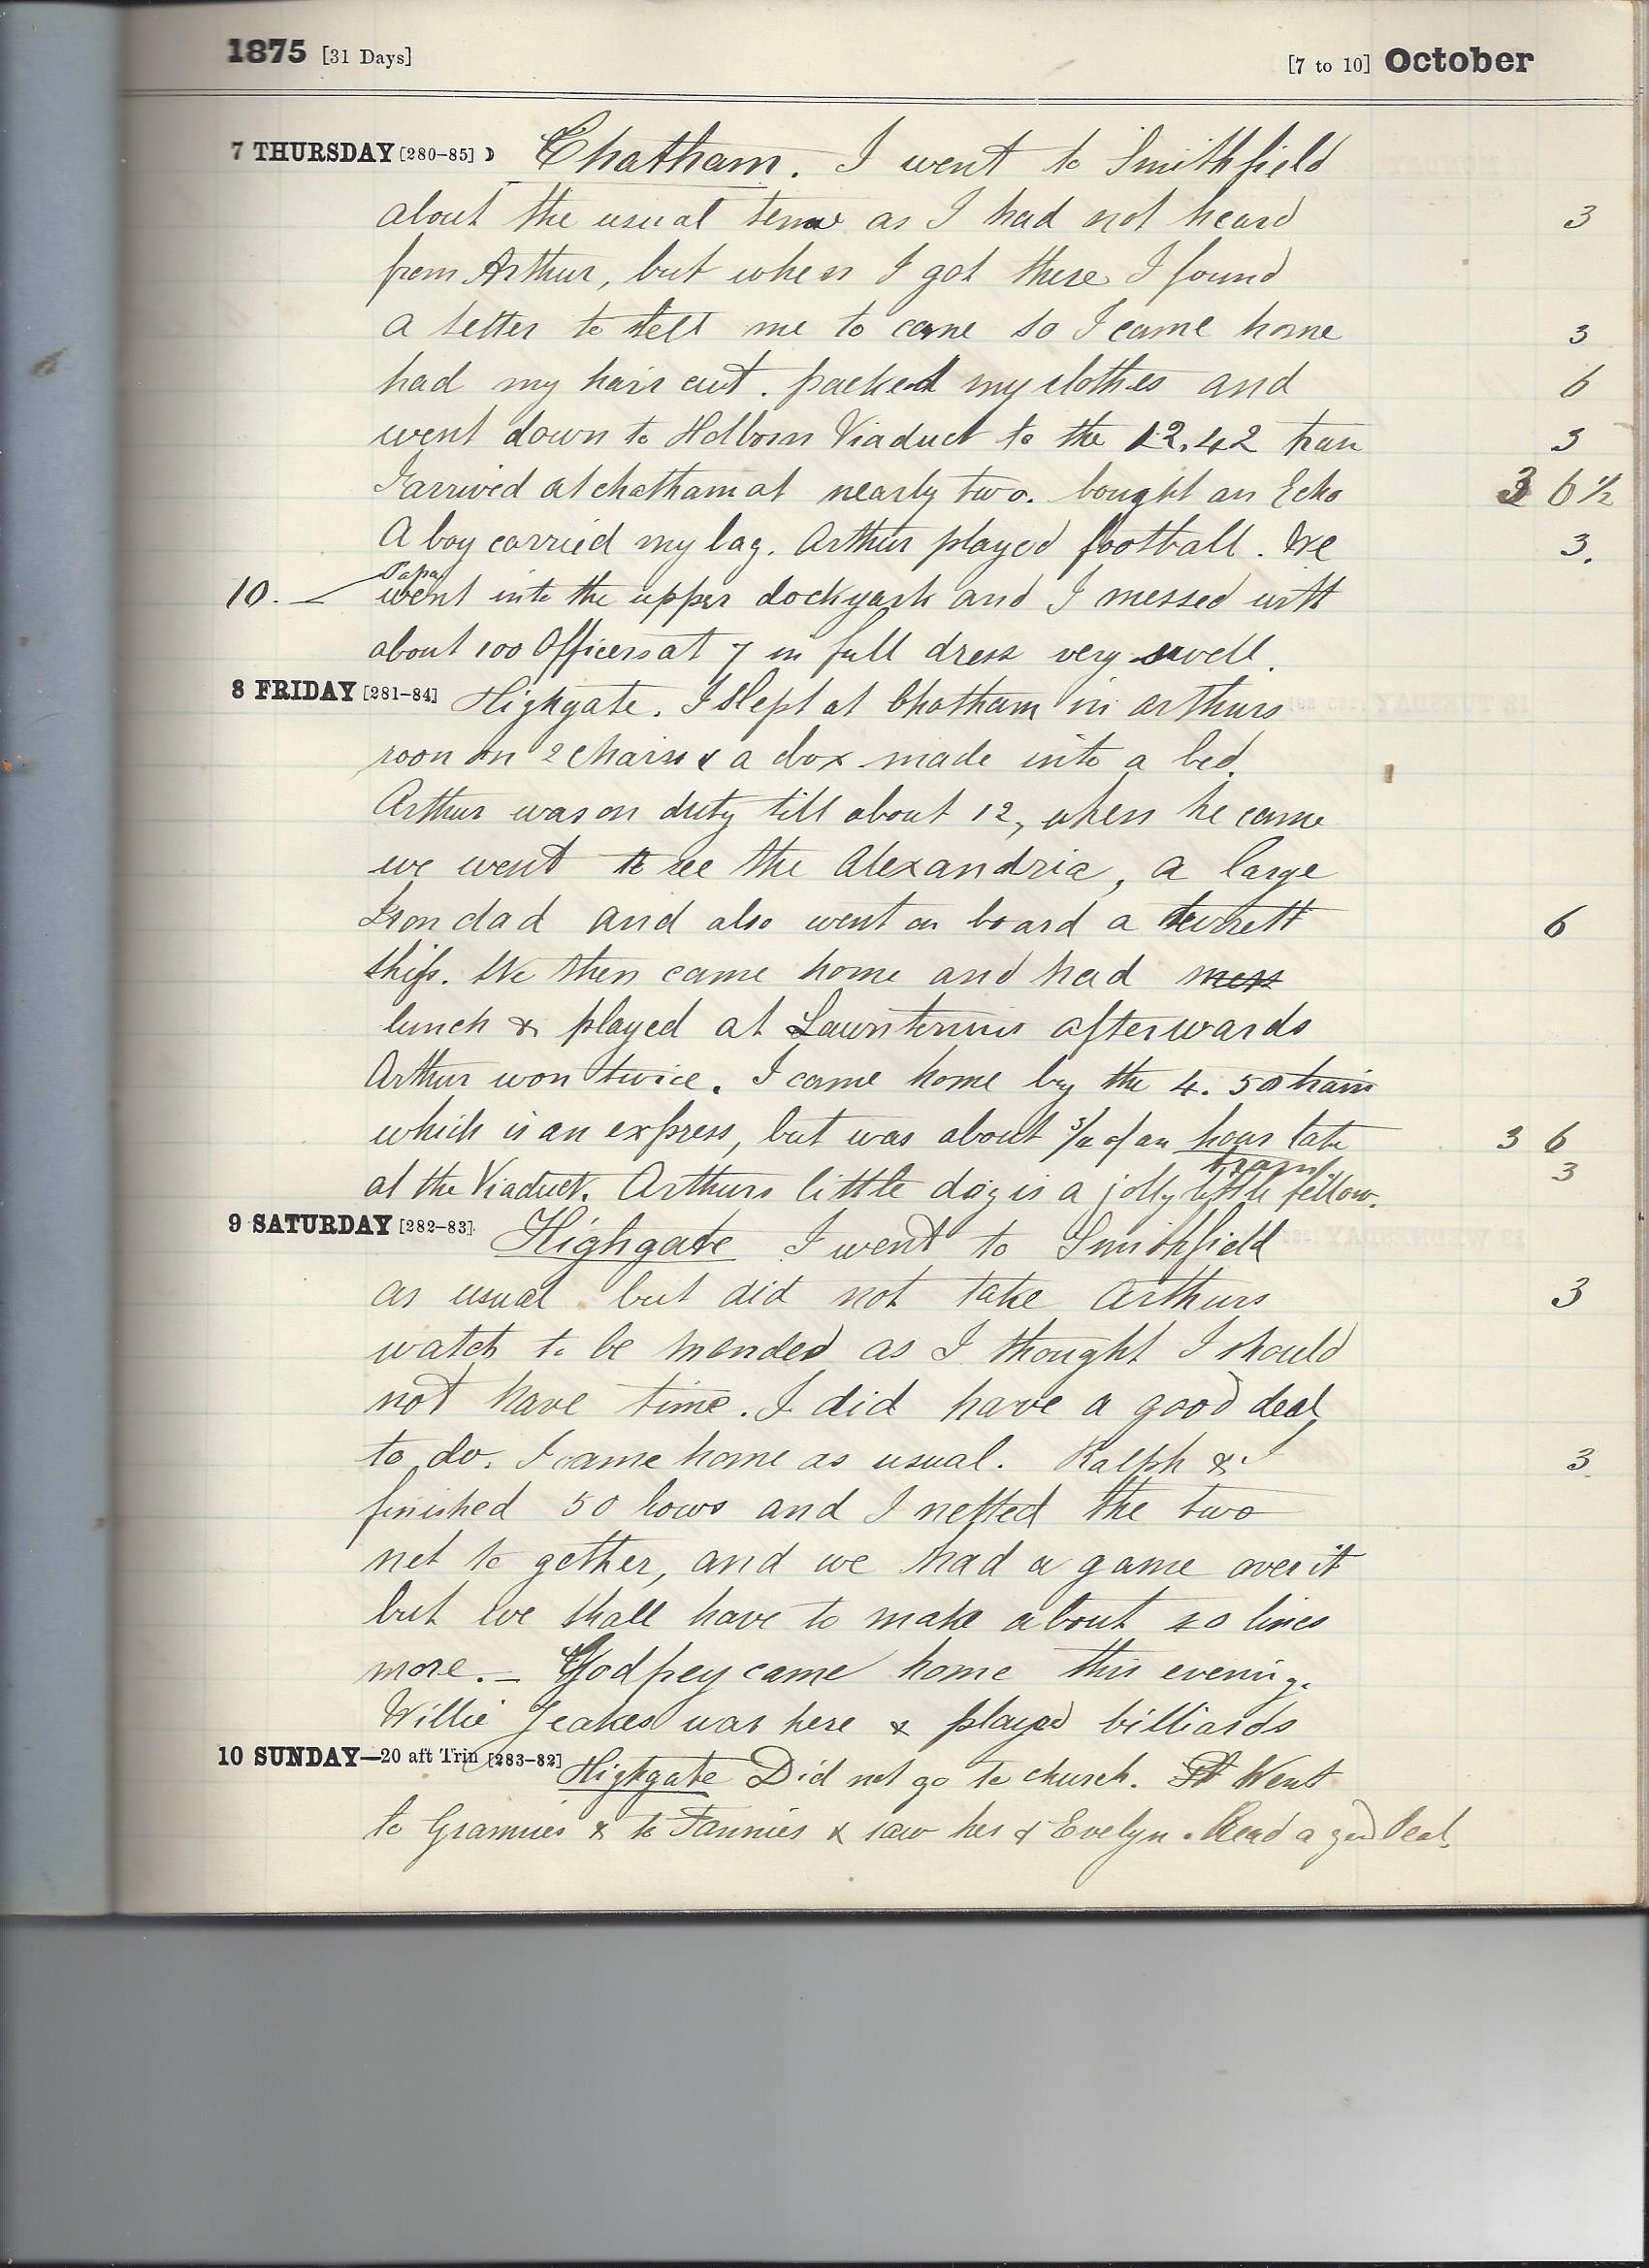 1875 [31 Days] [7 to 10] October
7 THURSDAY [280-85] ☽ Chatham. I went to Smithfield
about the usual time as I had not heard 3
from Arthur, but when I got there I found
a letter to tell me to come so I came home 3
had my hair cut. packed my clothes and 6
went down to Holborn Viaduct to the 12.42 train 3
I arrived at chatham at nearly two. bought an Echo 3 6 1/2
A boy carried my bag. Arthur played football. We 3.
Papa
10. went into the upper dockyark and I messed with
about 100 Officers at 7 in full dress very swell.
8 FRIDAY [281-84] Highgate. I slept at Chatham in arthurs
room on 2 chairs & a box made into a bed.
Arthur was on duty till about 12, when he came
we went to see the Alexandria, a large
Iron clad and also went on board a turrett 6
ship. We then came home and had mess
lunch & played at Lawn tennis afterwards
Arthur won twice. I came home by the 4.50 train
which is an express, but was about 3/4 of an hour late 3 6
tram. 3
at the Viaduct. Arthurs little dog is a jolly little fellow.
9 SATURDAY [282-83] Highgate I went to Smithfield
as usual but did not take Arthurs 3
watch to be mended as I thought I should
not have time. I did have a good deal
to do. I came home as usual. Ralph & I 3.
finished 50 rows and I netted the two
net to gether, and we had a game over it
but we shall have to make about 20 lines
more. — Godfrey came home this evening.
Willie Jeakes was here & played billiards
10 SUNDAY—20 aft Trin [283-82] Highgate Did not go to church. Went
to Grannies & to Fannies & saw her & Evelyn. Read a good deal.